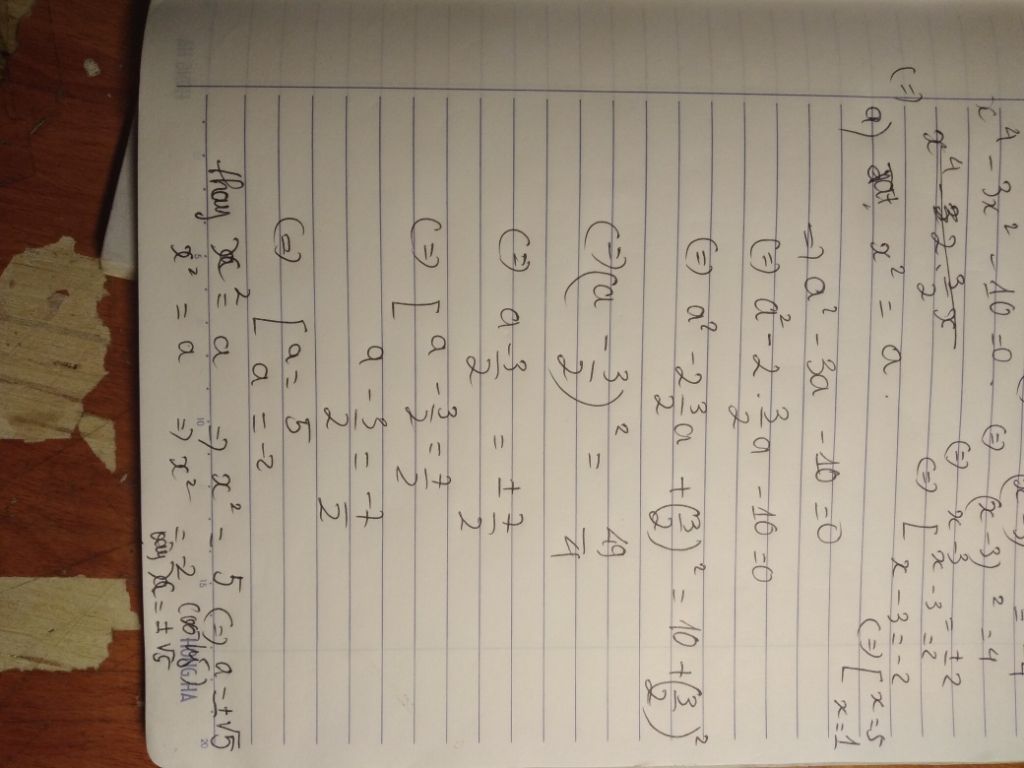 (x-3)² = 4
x⁴ - 3x² - 10 = 0. (=) (x-3)² = 4
(=) x-3 = ±2
x⁴ - 2.3/2 x (=) [ x-3 = 2
(=) x-3 = -2
a) Đặt x² = a. (=) [ x = 5
x = 1
=) a² - 3a - 10 = 0
(=) a² - 2.3/2 a - 10 = 0
(=) a² - 2 3/2 a + (3/2)² = 10 + (3/2)²
(=) (a - 3/2)² = 49/4
(=) a - 3/2 = ± 7/2
(=) [ a - 3/2 = 7/2
a - 3/2 = -7/2
(=) [ a = 5
a = -2
thay x² = a =) x² = 5 (=) a = ±√5
x² = a =) x² = -2
vậy x = ±√5